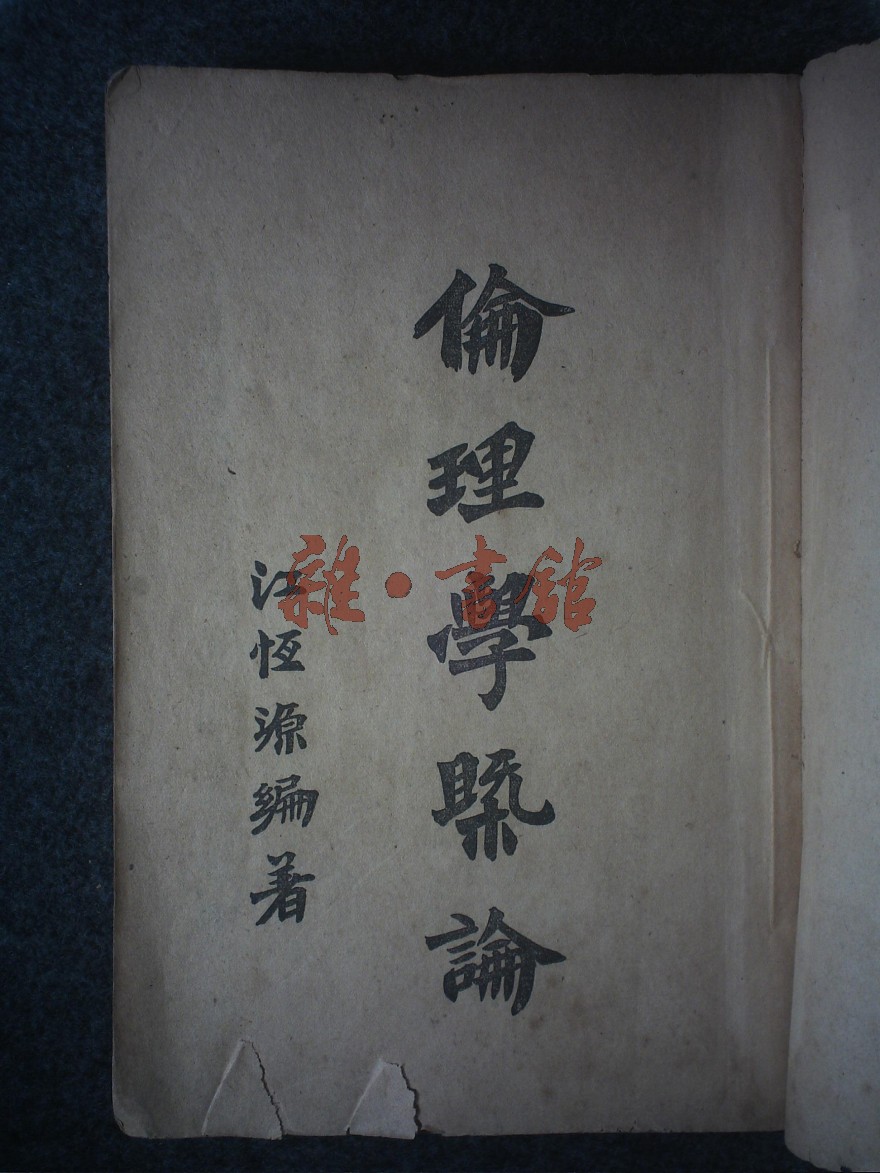 倫理學槩論
江恆源編著
雜·書館